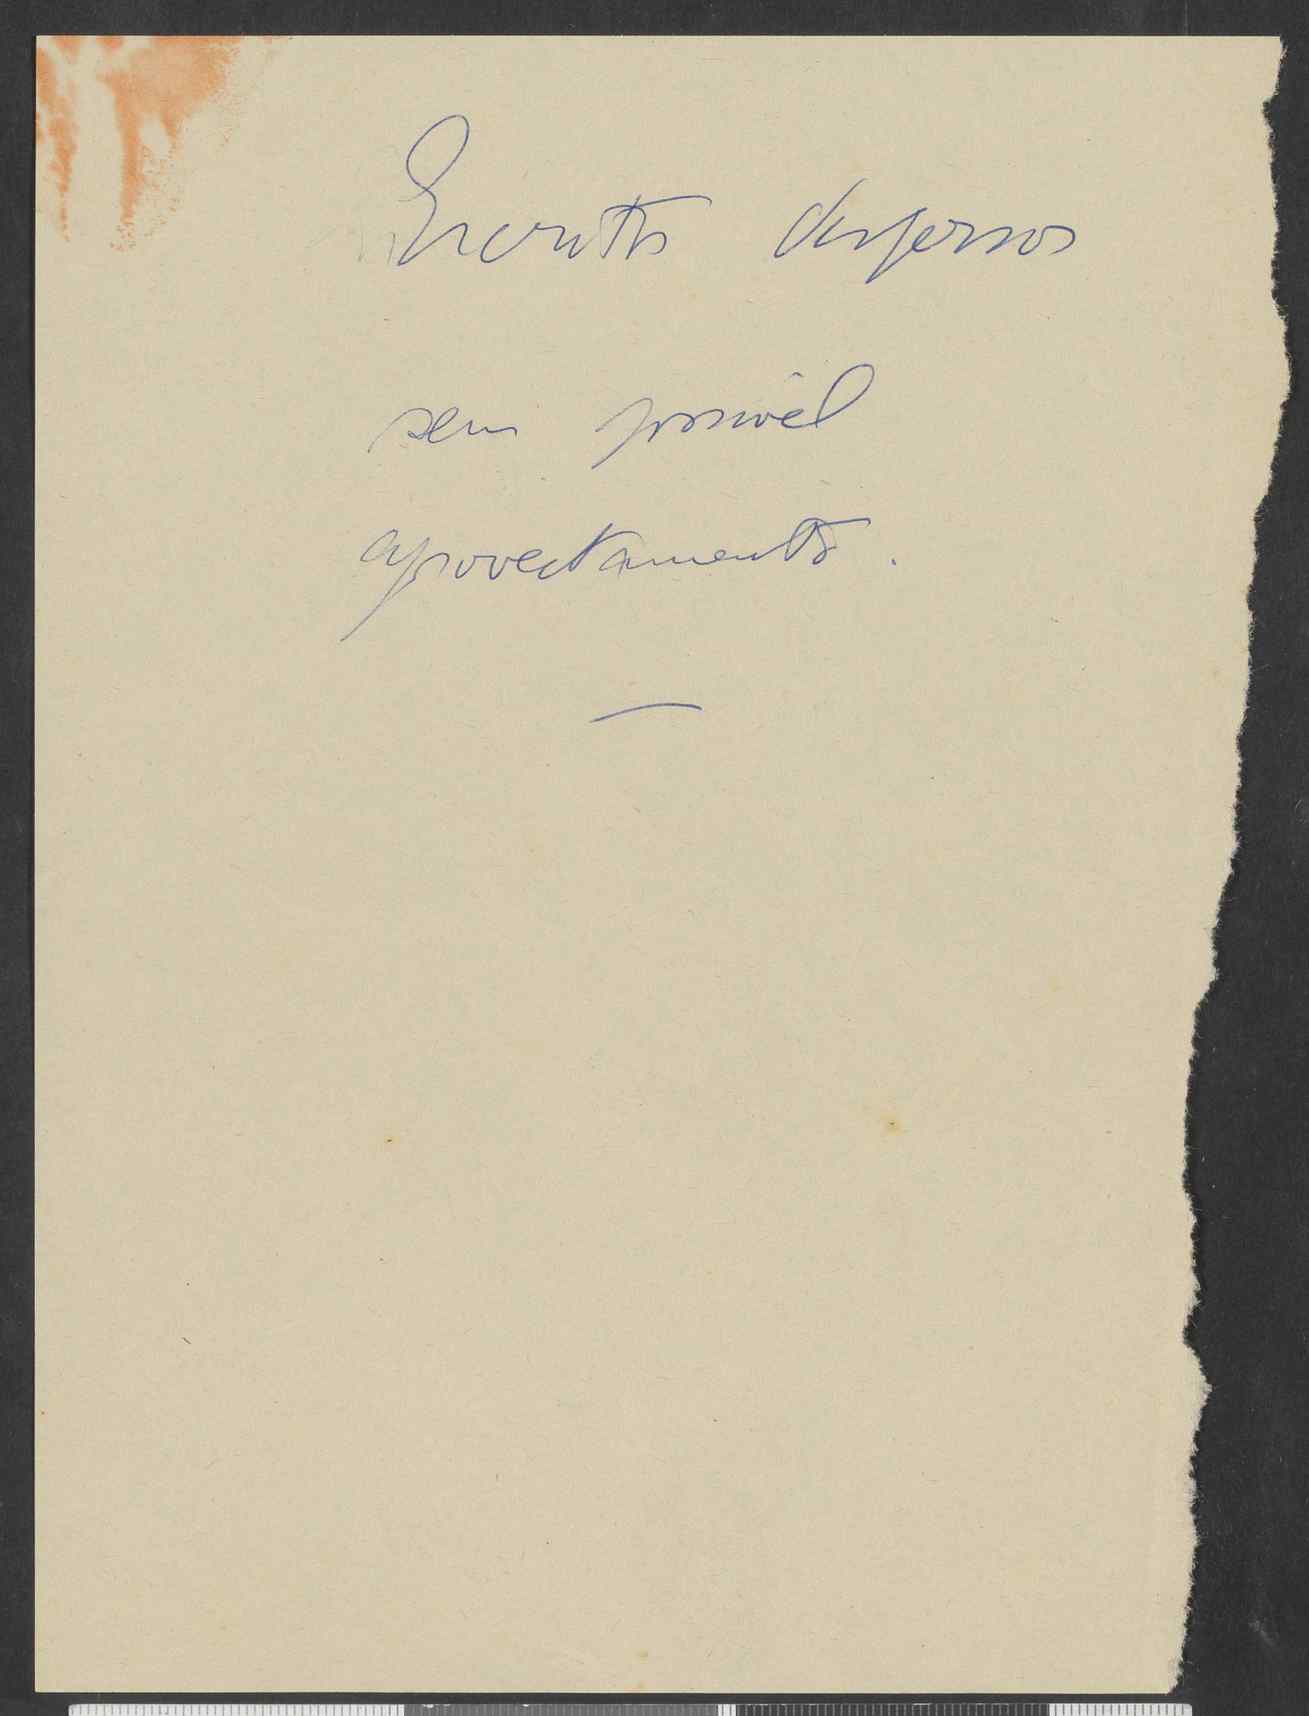 Escritos dispersos
sem possivel
aproveitamento.